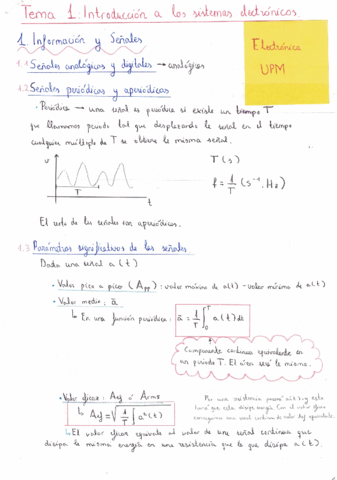 Tema 1: Introducción a los sistemas electrónicos.
Electrónica
UPM
1. Información y Señales
1.1 Señales analógicas y digitales → analógicas
1.2 Señales periódicas y aperiódicas
· Periódica → una señal es periódica si existe un tiempo T
que llamaremos periodo tal que desplazando la señal en el tiempo
cualquier múltiplo de T se obtiene la misma señal.
v
T
t
T (s)
f = 1/T (s⁻¹, Hz)
El resto de las señales son aperiódicas.
1.3 Parámetros significativos de las señales
Dada una señal a(t)
· Valor pico a pico (App): valor máximo de a(t) - valor mínimo de a(t)
· Valor medio: ā
↳ En una función periódica: ā = 1/T ∫₀ᵀ a(t) dt
Componente continua equivalente en
un periodo T. El área será la misma.
· Valor eficaz: Aef ó Arms
↳ Aef = √(1/T ∫ a²(t)
Por una resistencia
que esta disipe energía. Con el valor eficaz
↳ El valor eficaz equivale al valor de una señal continua que
disipa la misma energía en una resistencia que la que disipa a(t).